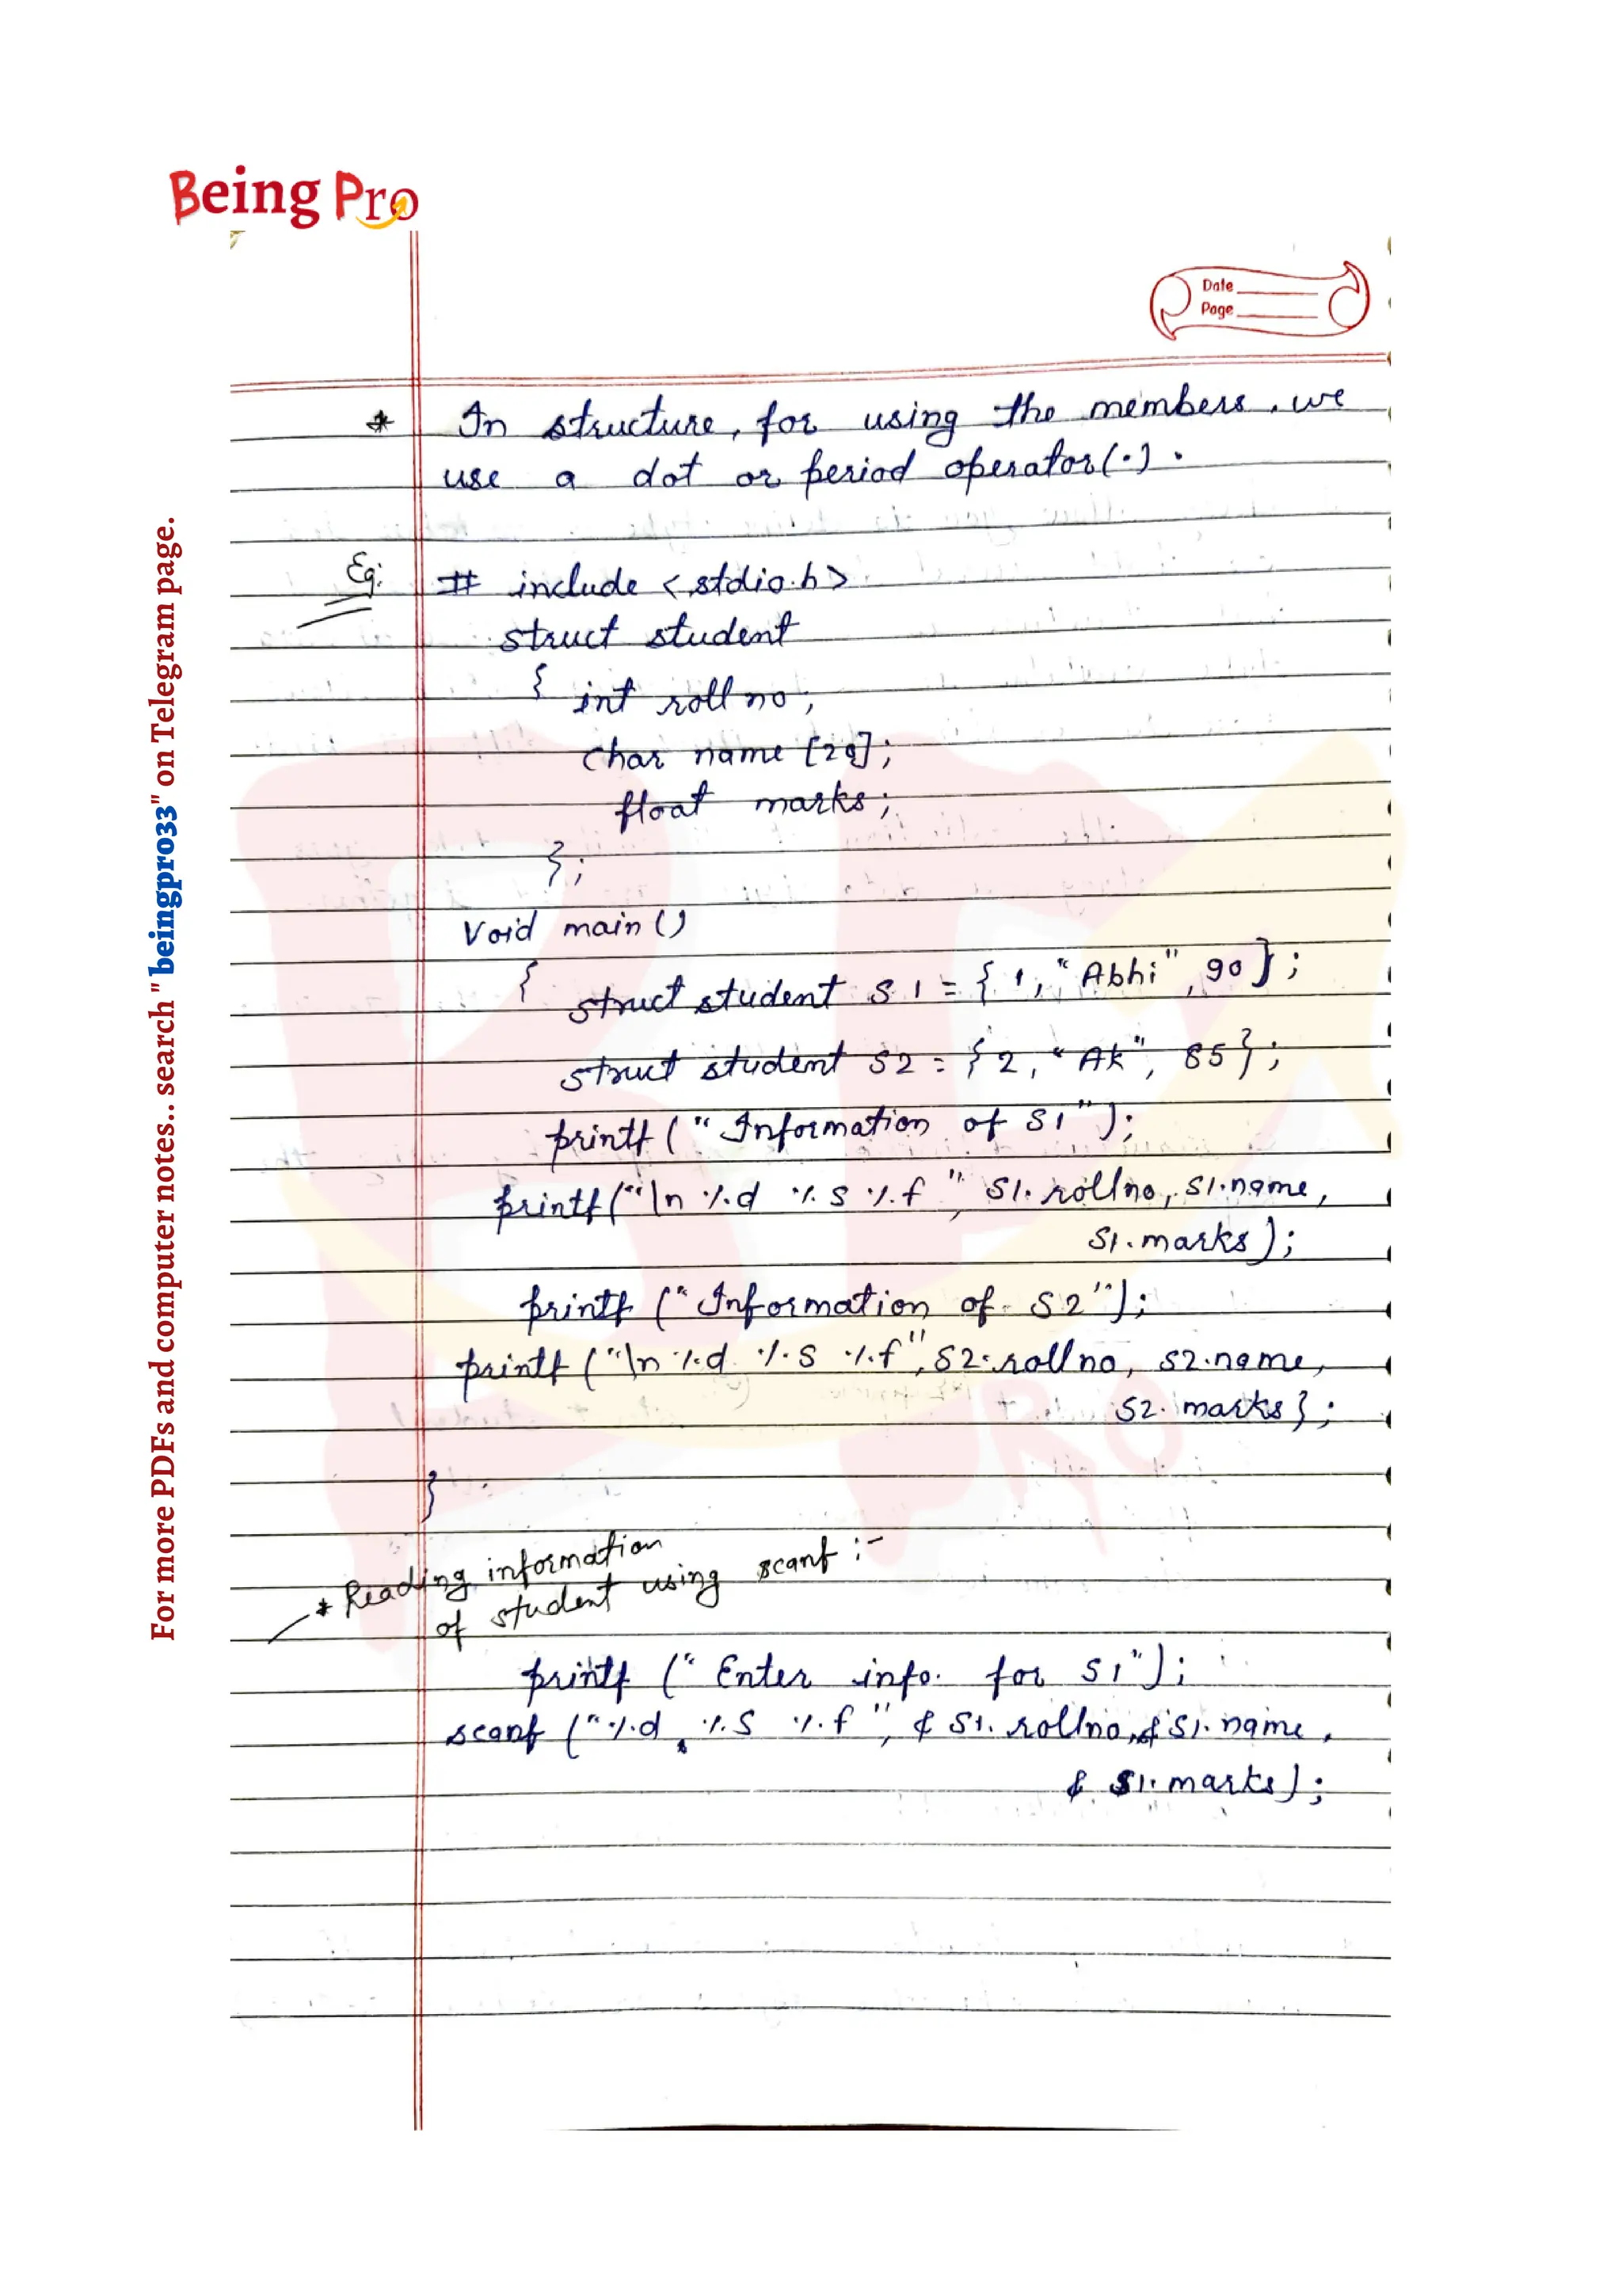 Being Pro
Date
Page
* In structure, for using the members, we
use a dot or period operator(.).
Eg: # include <stdio.h>
struct student
{ int roll no;
char name [20];
float marks;
};
Void main ()
{ struct student S1 = { 1, "Abhi", 90 };
struct student S2 = { 2, "Ak", 85 };
printf ( "Information of S1" );
printf ("\n %d %s %f ", S1. rollno, S1.name,
S1.marks );
printf ("Information of S2");
printf ("\n %d %s %f", S2.rollno, S2.name,
S2. marks };
}
* Reading information
of student using scanf :-
printf (" Enter info. for S1");
scanf ("%d %s %f ", & S1. rollno, & S1. name,
& S1. marks);
For more PDFs and computer notes.. search "beingpro33" on Telegram page.
BP
PRO